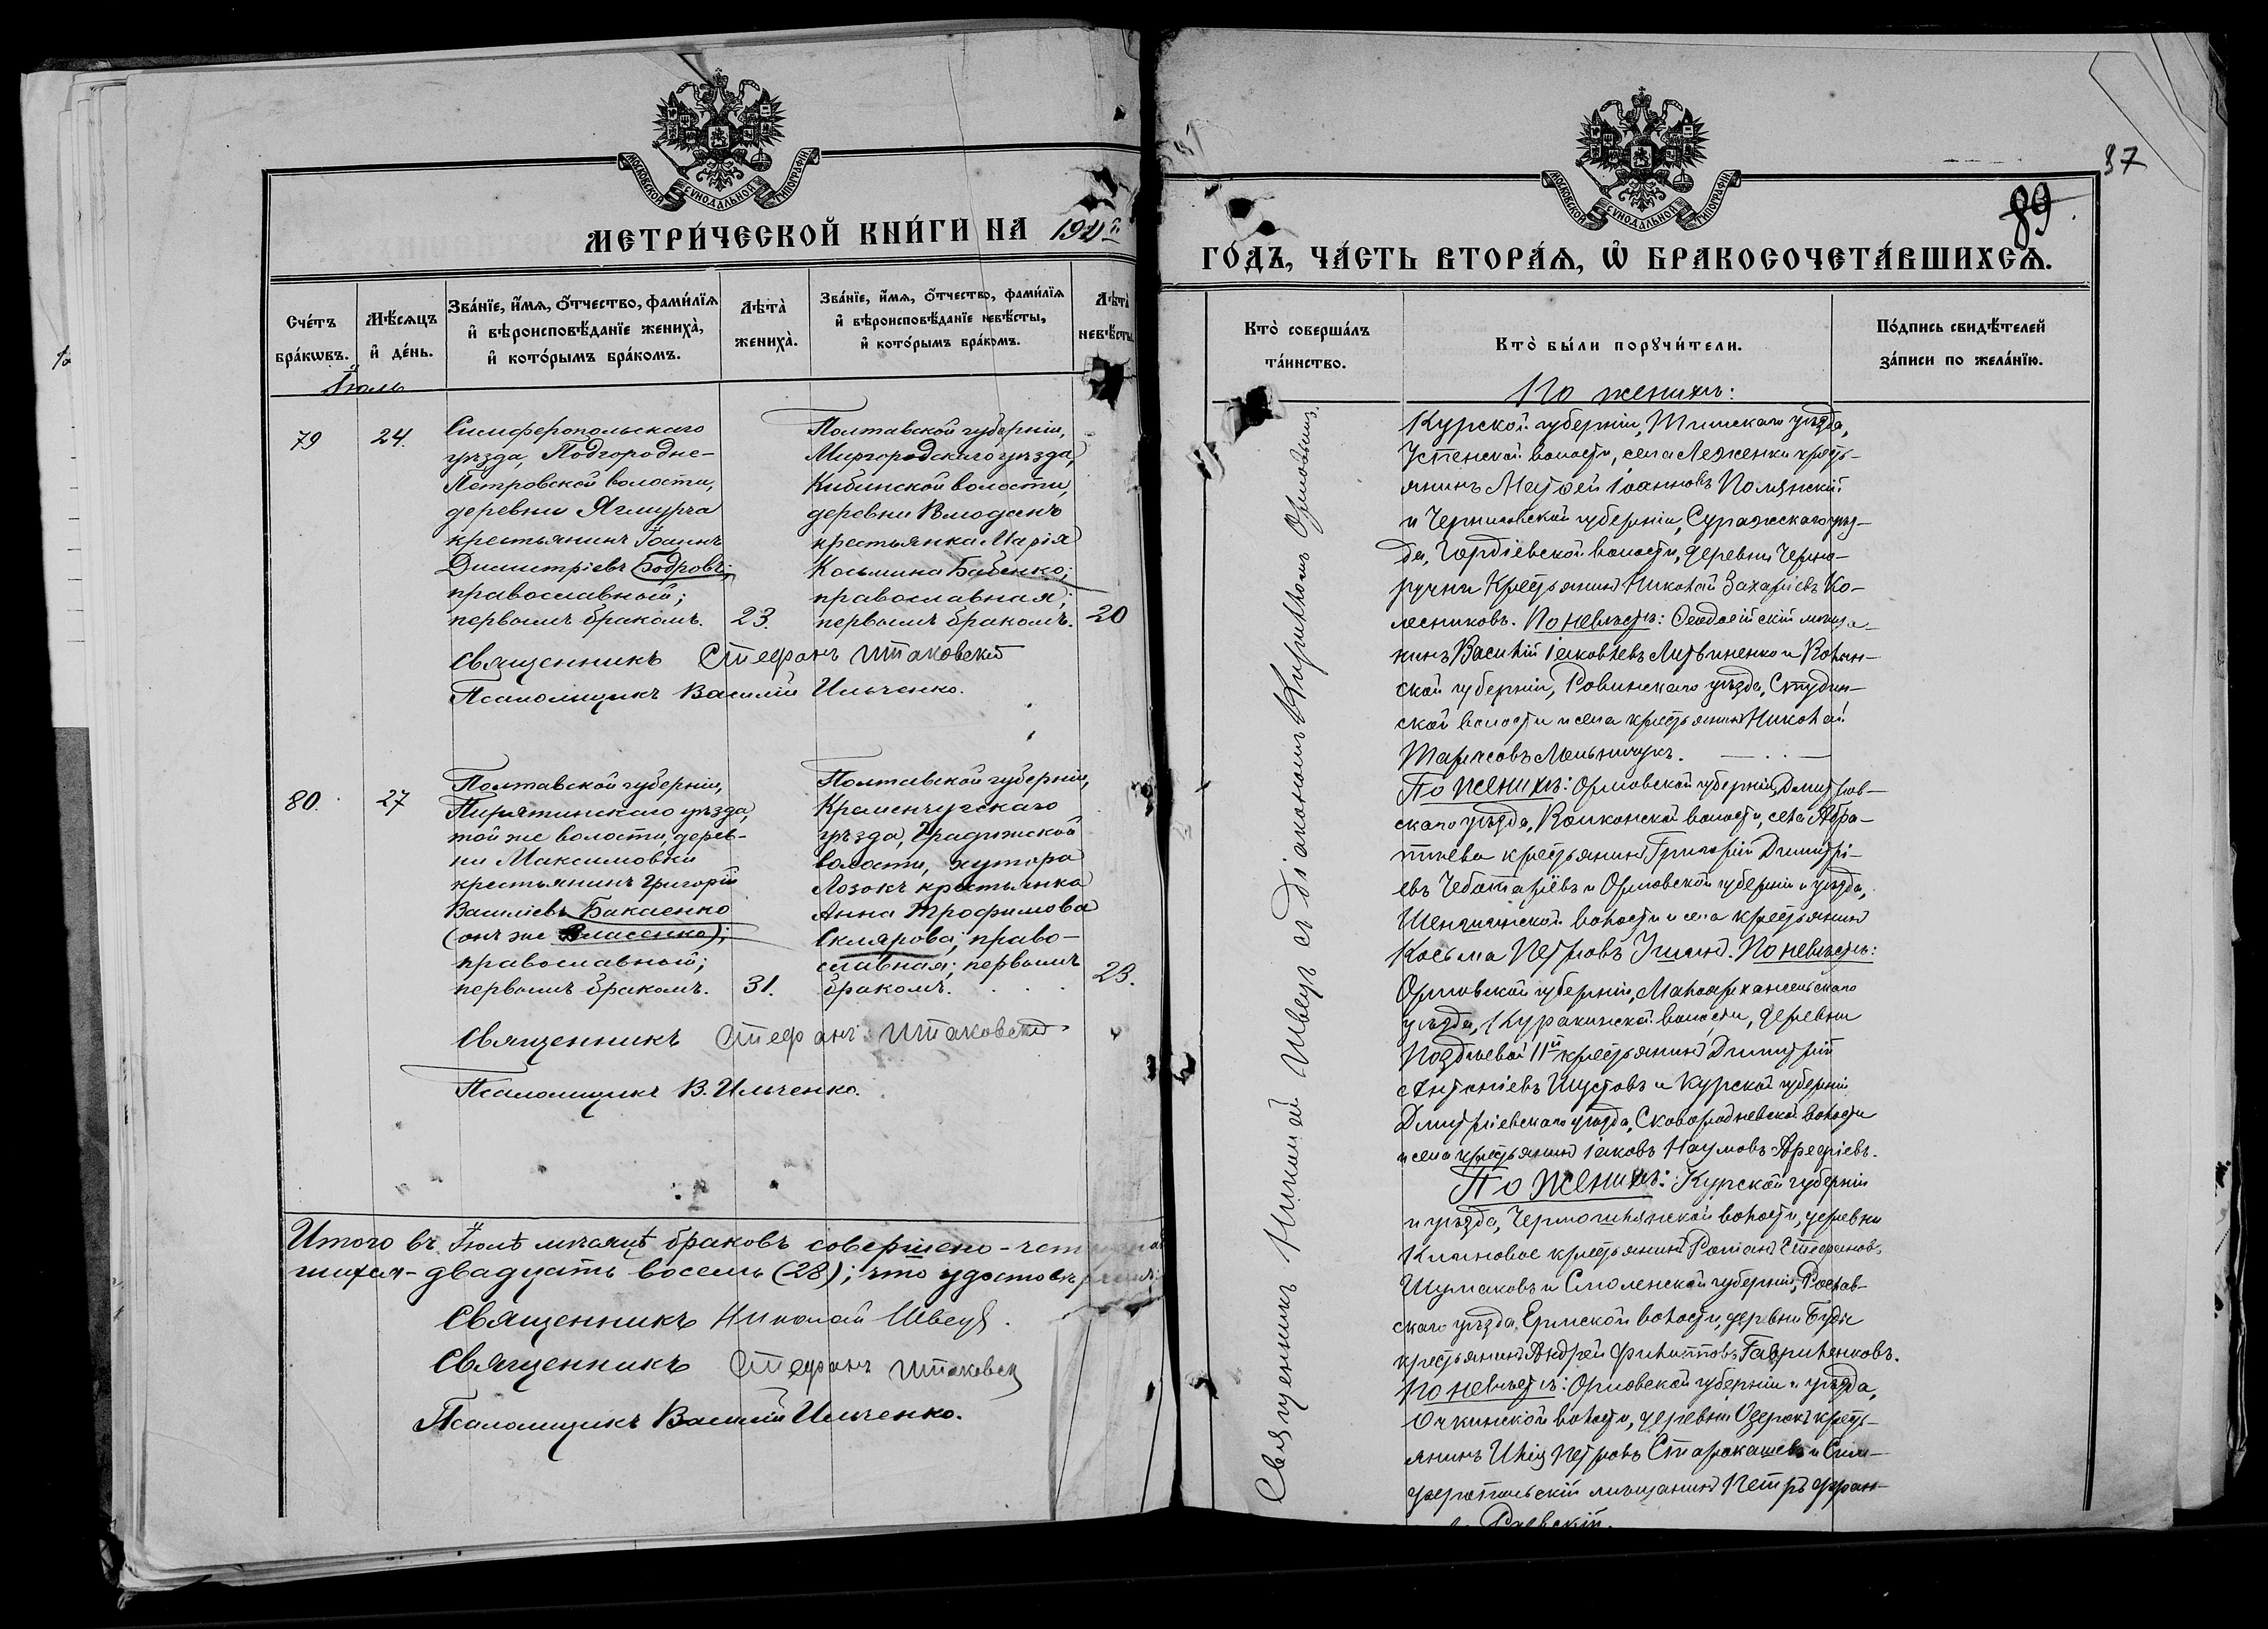 МОСКОВСКОЙ СѴНОДАЛЬНОЙ ТИПОГРАФІИ
МЕТРИ́ЧЕСКОЙ КНИ́ГИ НА
Сче́тъ бра́кωвъ.
Мѣ́сѧцъ и҆ де́нь.
Зва́нїе, и҆́мѧ, ѻ҆́тчество, фами́лїѧ и҆ вѣроисповѣ́данїе жениха̀, и҆ кото́рымъ бра́комъ.
Лѣ̀та̀ жениха̀.
Зва́нїе, и҆́мѧ, ѻ҆́тчество, фами́лїѧ и҆ вѣроисповѣ́данїе невѣ́сты, и҆ кото́рымъ бра́комъ.
Лѣ̀та̀ невѣ́сты.
Іюль
79
24.
Симферопольскаго
уѣзда, Подгородне-
Петровской волости,
деревни Ягмурча
крестьянинъ Іоаннъ
Димитріевъ Бодровъ;
православный;
первымъ бракомъ.
23.
Полтавской губерніи,
Миргородскаго уѣзда,
Кибинской волости,
деревни
крестьянка Марія
Косьмина Бабенко;
православная;
первымъ бракомъ.
20
Священникъ Стефанъ Штаковскій
Псаломщикъ Василій Ильченко.
80.
27
Полтавской губерніи,
Пирятинскаго уѣзда,
той же волости, дерев-
ни Максимовки
крестьянинъ Григорій
Василіевъ Бакаенко
(онъ же Власенко);
православный;
первымъ бракомъ.
31.
Полтавской губерніи,
Кременчугскаго
уѣзда, Градижской
волости, хутора
Лозокъ крестьянка
Анна Трофимова
Склярова; право-
славная; первымъ
бракомъ.
23.
Священникъ Стефанъ Штаковскій
Псаломщикъ В. Ильченко.
Итого въ Іюлѣ мѣсяцѣ браковъ совершено-
двадцать восемь (28); что
Священникъ Николай Швецъ.
Священникъ Стефанъ Штаковскій
Псаломщикъ Василій Ильченко.
МОСКОВСКОЙ СѴНОДАЛЬНОЙ ТИПОГРАФІИ
87
89
ГО́ДЪ, ЧА́СТЬ ВТОРА́Ѧ, Ѽ БРАКОСОЧЕТА́ВШИХСѦ.
Кто̀ соверша́лъ та́инство.
Кто̀ бы́ли порꙋчи́тели.
По́дпись свидѣ́телей за́писи по жела́нїю.
Священникъ Николай Швецъ съ діакономъ Орловымъ.
По женихѣ:
Курской губерніи, Тимскаго уѣзда,
Успенской волости, села Леженки кресть-
янинъ Матфей Іоанновъ Полянскій
и Черниговской губерніи, Суражскаго уѣз-
да, Гордіевской волости, деревни Черно-
ручки крестьянинъ Николай Захаріевъ Ко-
лесниковъ. По невѣстѣ: Ѳеодосійскій мѣща-
нинъ Василій Іаковлевъ Литвиненко и Волын-
ской губерніи, Ровенскаго уѣзда, Студин-
ской волости и села крестьянинъ Николай
Тарасовъ Мельничукъ.
По женихѣ: Орловской губерніи, Дмитров-
скаго уѣзда, волости, села
крестьянинъ Григорій Димитрі-
евъ Чеботаревъ и Орловской губерніи и уѣзда,
волости и села крестьянинъ
Косьма Петровъ По невѣстѣ:
Орловской губерніи, Малоархангельскаго
уѣзда, Куракинской волости, деревни
Поздѣевой 11й крестьянинъ Димитрій
Антоніевъ Шустовъ и Курской губерніи
Дмитріевскаго уѣзда, Сковородневской волости
и села крестьянинъ Іаковъ Наумовъ Арефіевъ.
По женихѣ: Курской губерніи
и уѣзда, волости, деревни
Кленовое крестьянинъ Романъ Стефановъ
Шумаковъ и Смоленской губерніи, Рослав-
скаго уѣзда, волости, деревни Буды
крестьянинъ Андрей Филипповъ Гавриленковъ.
По невѣстѣ: Орловской губерніи и уѣзда,
волости, деревни Озерокъ кресть-
янинъ Илія Петровъ и Сим-
феропольскій мѣщанинъ Петръ Фран-